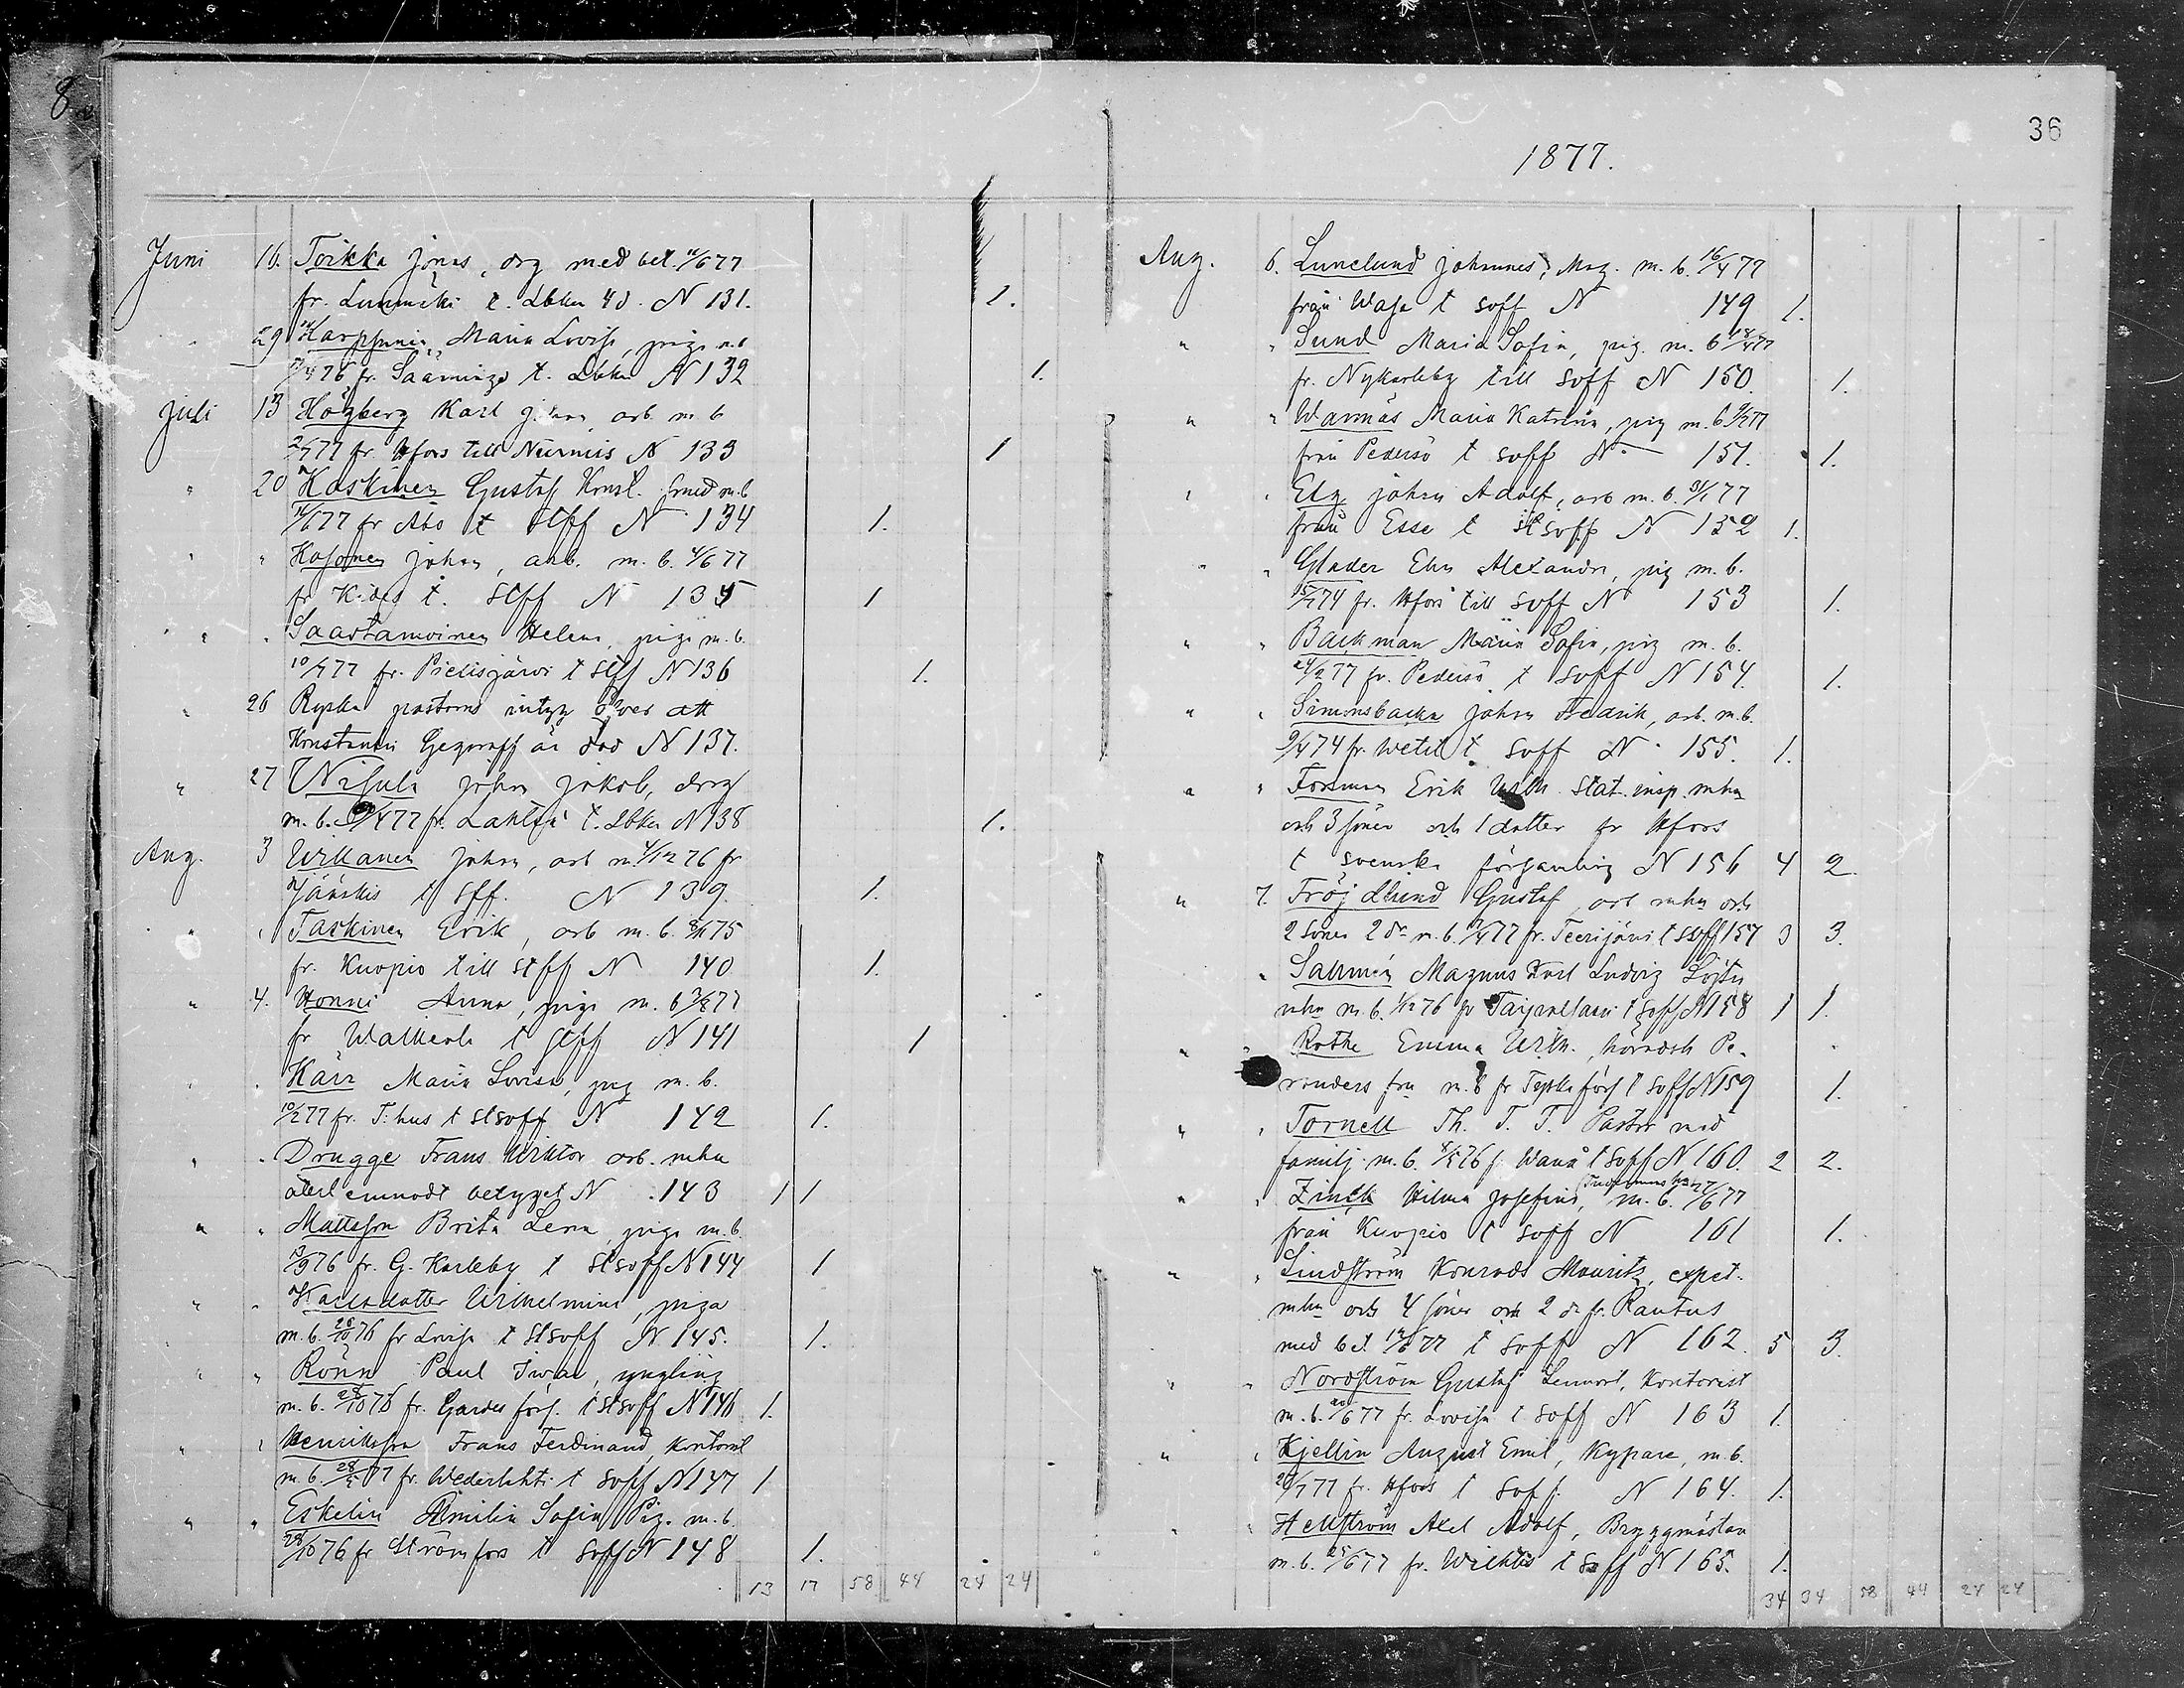 8
36
1877.
Juni 16. Toikka Jonas, drg med bet. 11/6 77
fr. Lumivaki t. Lbka 40. N 131. 1.
29 Karppanen Maria Lovisa, piga m.b
76 fr. Saaminge t. Lbka N 132 1.
Juli 13 Högberg Karl Johan, arb. m. b
2/7 77 fr. Hfors till Nurmis N 133 1
" 20 Koskinen Gustaf Konst. smed m.b
/6 77 fr Åbo t stff N 134 1.
" " Kosonen Johan, arb. m. b. 4/6 77
fr Kides t. stff N 135 1
" " Saastamoinen Helena, piga m. b.
10/7 77 fr. Pielisjärvi t stff N 136 1.
" 26 Ryska pastorns intyg över att
Konstantin Gegoroff är död N 137.
" 27 Nisula Johan Jakob, drg
m. b. /4 77 fr. Lahtis t. Lbka N 138 1.
Aug. 3 Willanen Johan, arb m. 4/12 76 fr
Jääskis t sff. N 139. 1.
" " Taskinen Erik, arb m. b. 75
fr. Kuopio till stff N 140 1.
" 4. Honni Anna, piga m. b 77
fr Walkeala t stff N 141 1
" " Käir Maria Lovisa, pig m. b.
10/2 77 fr. T:hus t stsoff N 142 1.
" " Drugge Frans Wiktor arb. mhu
återl emnadt betyget N 143 1 1
" " Mattsson Brita Lena, piga m.b.
/9 76 fr. G. Karleby t stsoff N 144 1
" " Karlsdotter Wilhelmina, piga
m. b. 26/10 76 fr Lovisa t stsoff N 145. 1.
" " Rönn Paul Iwar, yngling
m. b. 28/10 76 fr. Gardes förs. t stsoff N 146 1.
" " Henriksson Frans Ferdinand, kontorist
m. b. 28/5 77 fr. Wederlahti t soff N 147 1
" " Eskelin Emilia Sofia Pig. m. b
28/10 76 fr Strömfors t soff N 148 1.
13 17 58 44 24 24
Aug. 6. Lunelund Johannes, Mag. m. b. 16/4 77
från Wasa t soff N 149 1.
" " Sund Maria Sofia, pig. m. b 18/4 77
fr. Nykarleby till soff N 150. 1.
" " Warnäs Maria Katrina, pig m. b 9/2 77
från Pedersö t soff N 151. 1.
" " Elg Johan Adolf, arb m. b. 31/1 77
från Esse t stsoff N 152 1.
" " Glader Elin Alexandra, pig m. b.
15/7 74 fr. Hfors till soff N 153 1.
" " Backman Maria Sofia, pig m. b.
24/2 77 fr. Pedersö t soff N 154. 1.
" " Simonsbacka Johan Fredrik, arb. m. b.
9/4 74 fr. Wetil t soff N 155. 1.
" " Forsman Erik Wilh. Stat. insp. mhu
och 3 söner och 1 dotter fr Hfors
t svenska församling N 156 4 2.
" 7. Fröjdlund Gustaf arb mhu och
2 söner 2 dr m. b. 77 fr. Teerijärvi t stsoff 157 3 3.
" Sallmén Magnus Karl Ludvig Löjtn
mhu m. b. 1/12 76 fr Taipalsaari t soff N 158 1 1.
" " Rothe Emma Wilh. häradsh Pe-
randers fru m. b fr Tyska förs t soff N 159 1.
" " Tornell Th. T. T. Pastor med
familj m. b. 4/5 76 f. Wanå t soff N 160. 2 2.
" " Zinck Hilma Josefina, m. b. 27/6 77
från Kuopio t soff N 161 1.
" " Lindström Konrad Mauritz, exped.
mhu och 4 söner och 2 dr fr. Rautus
med bet. 14/6 77 t soff N 162. 5 3.
" " Nordström Gustaf Lennart, Kontorist
m. b. 20/6 77 fr. Lovisa t soff N 163 1.
" " Kjellin August Emil, Kypare, m. b.
20/7 77 fr. Hfors t soff. N 164. 1.
" " Hellström Axel Adolf, Bryggmästare
m. b. 25/6 77 fr. Wichtis t soff N 165. 1.
34 34 58 44 24 24